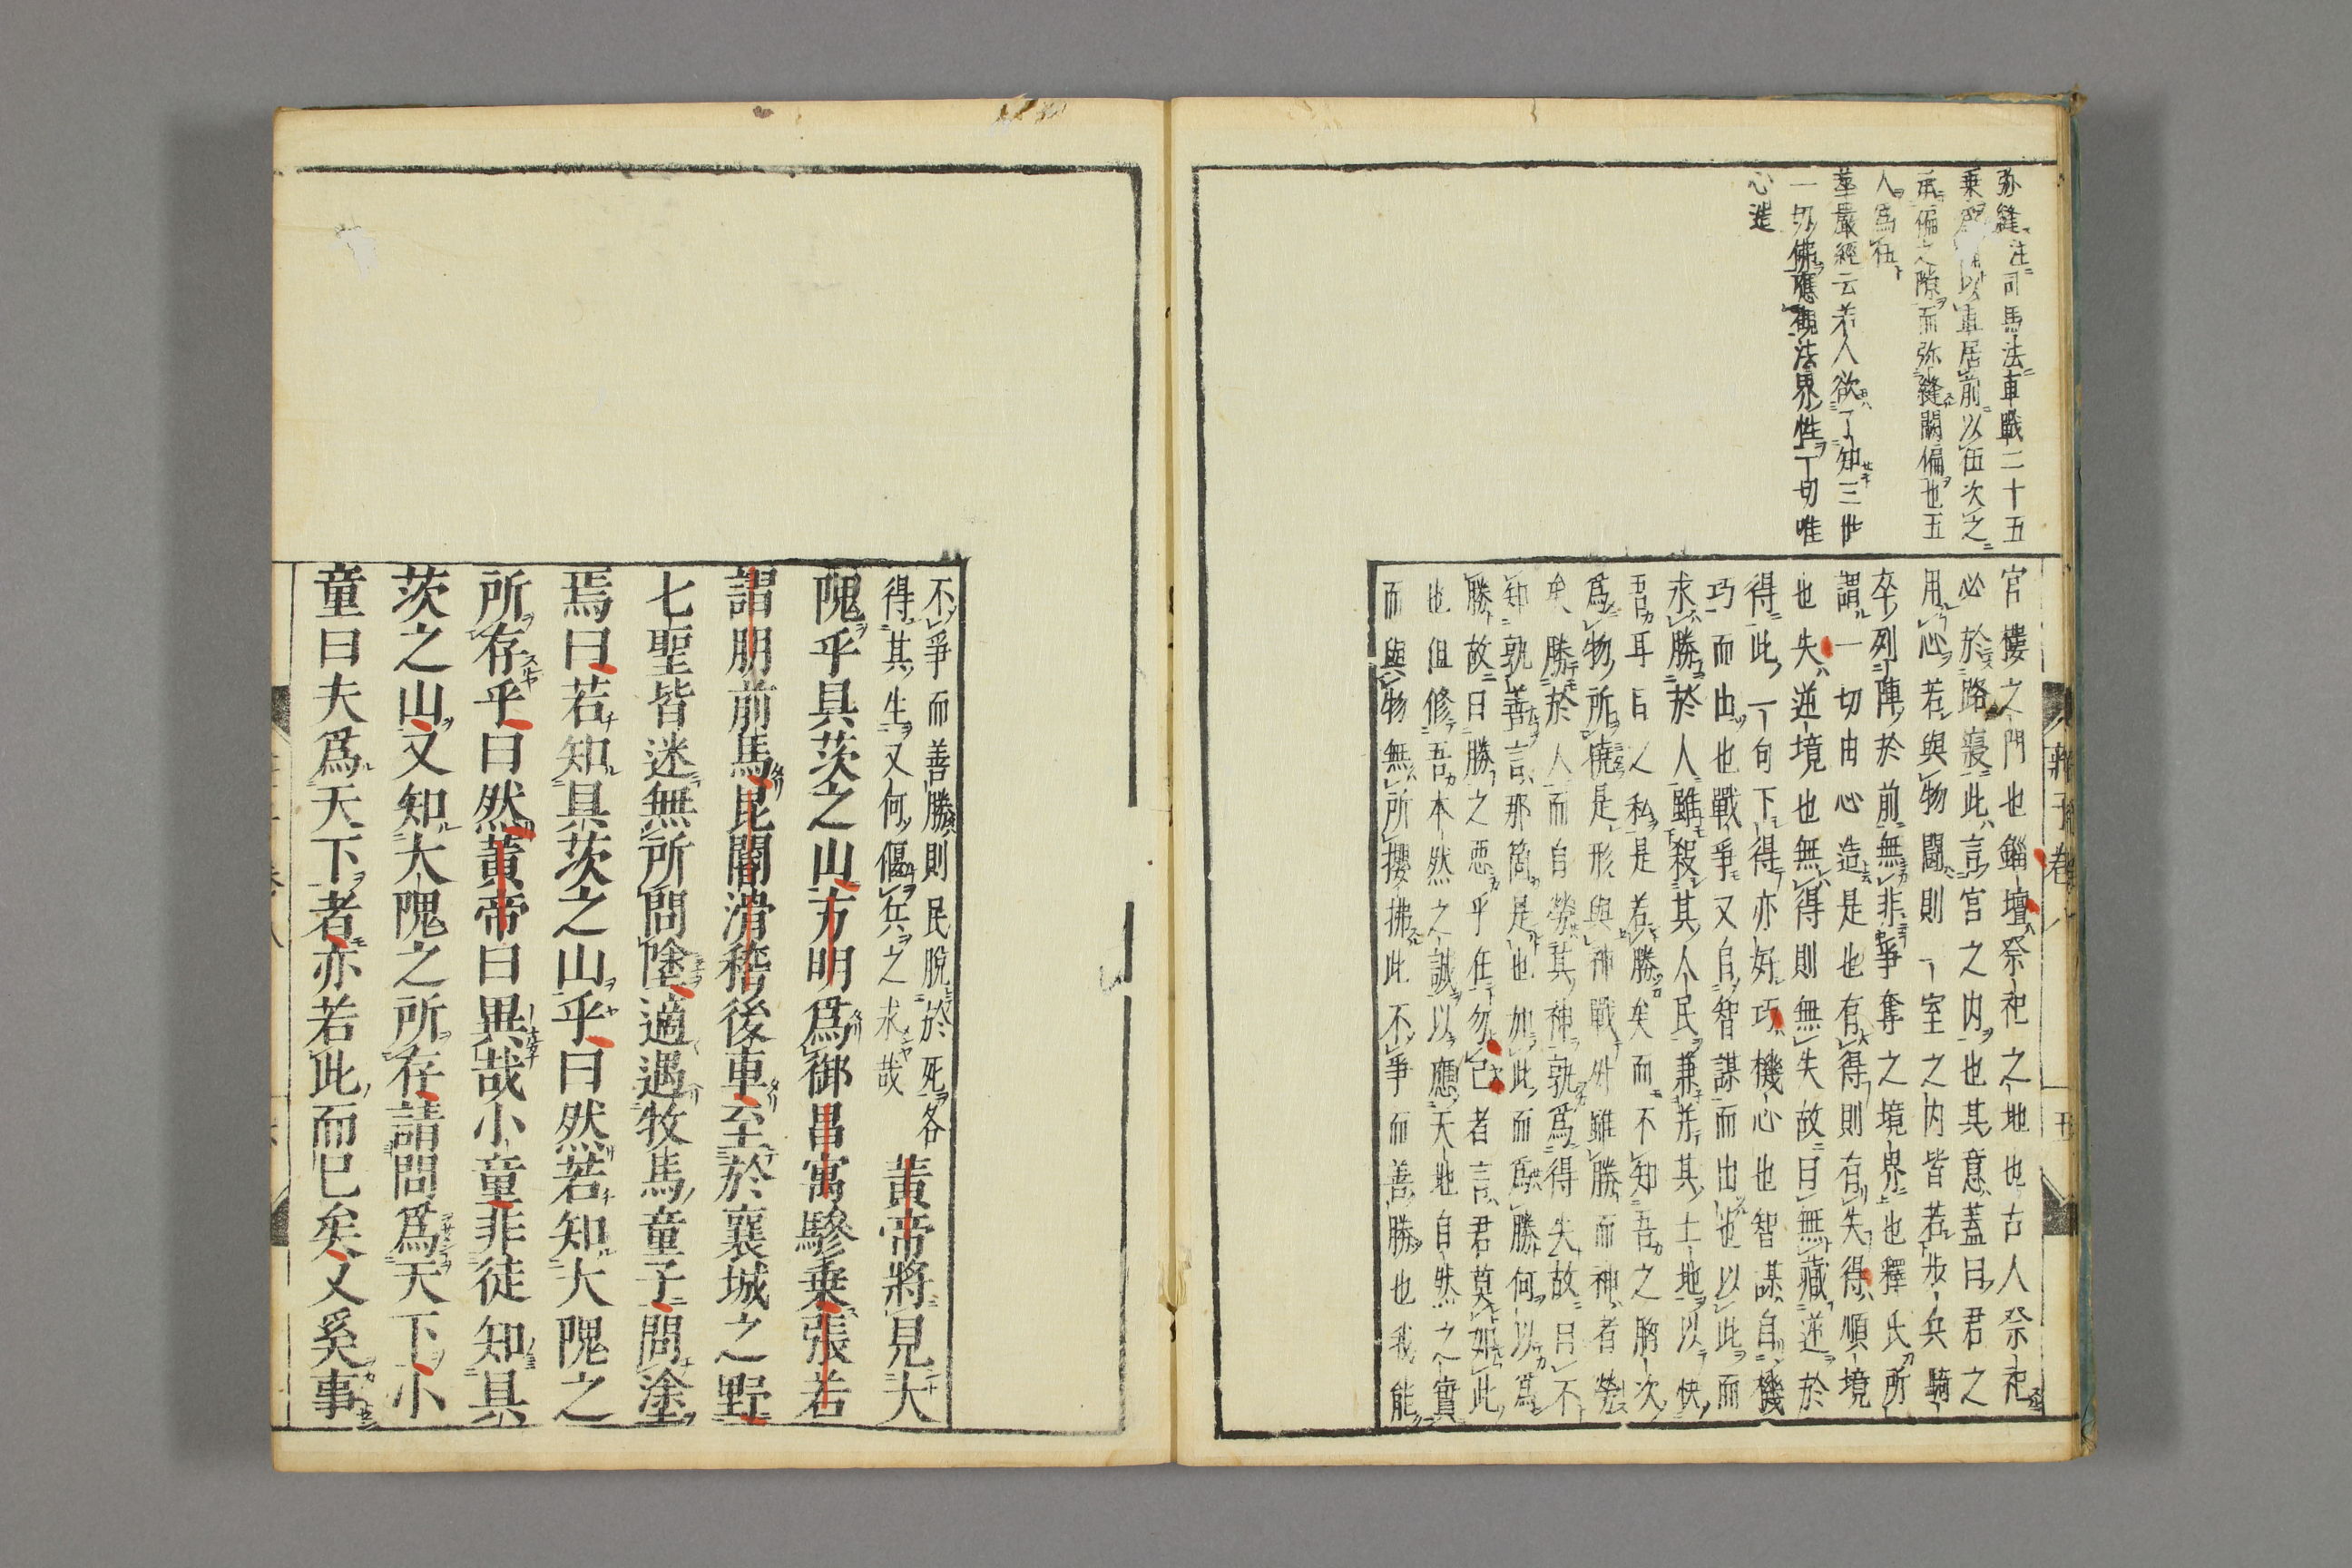 弥縫注司馬法車戰二十五
乗爲偏以車居前以伍次之
承偏之隙而弥縫闕偏也五
人爲伍
華嚴經云若人欲了知三世
一切佛應觀法界性一切唯
心造
官樓之門也錙壇祭祀之地也古人祭祀
必於路寢此言宮之内也其意蓋曰君之
用心若與物闘則一室之内皆若歩兵騎
卒列陣於前無非爭奪之境界也釋氏所
謂一切由心造是也有得則有失得順境
也失逆境也無得則無失故曰無藏逆於
得此一句下得亦好巧機心也智謀自機
巧而出也戰爭又自智謀而出也以此而
求勝於人雖殺其人民兼并其土地以快
吾耳目之私是若勝矣而不知吾之胷次
爲物所撓是形與神戰外雖勝而神者勞
矣勝於人而自勞其神孰爲得失故曰不
知孰善言那箇是也如此而爲勝何以爲
勝故曰勝之惡乎在勿已者言君莫如此
也但修吾本然之誠以應天地自然之實
而與物無所攖拂此不爭而善勝也我能
莊子 卷八 五
不爭而善勝則民脫於死各
得其生又何偃兵之求哉
黃帝將見大
隗乎具茨之山方明爲御昌寓驂乗張若
謵朋前馬昆閽滑稽後車至於襄城之野
七聖皆迷無所問塗適遇牧馬童子問塗
焉曰若知具茨之山乎曰然若知大隗之
所存乎曰然黃帝曰異哉小童非徒知具
茨之山又知大隗之所存請問爲天下小
童曰夫爲天下者亦若此而已矣又奚事